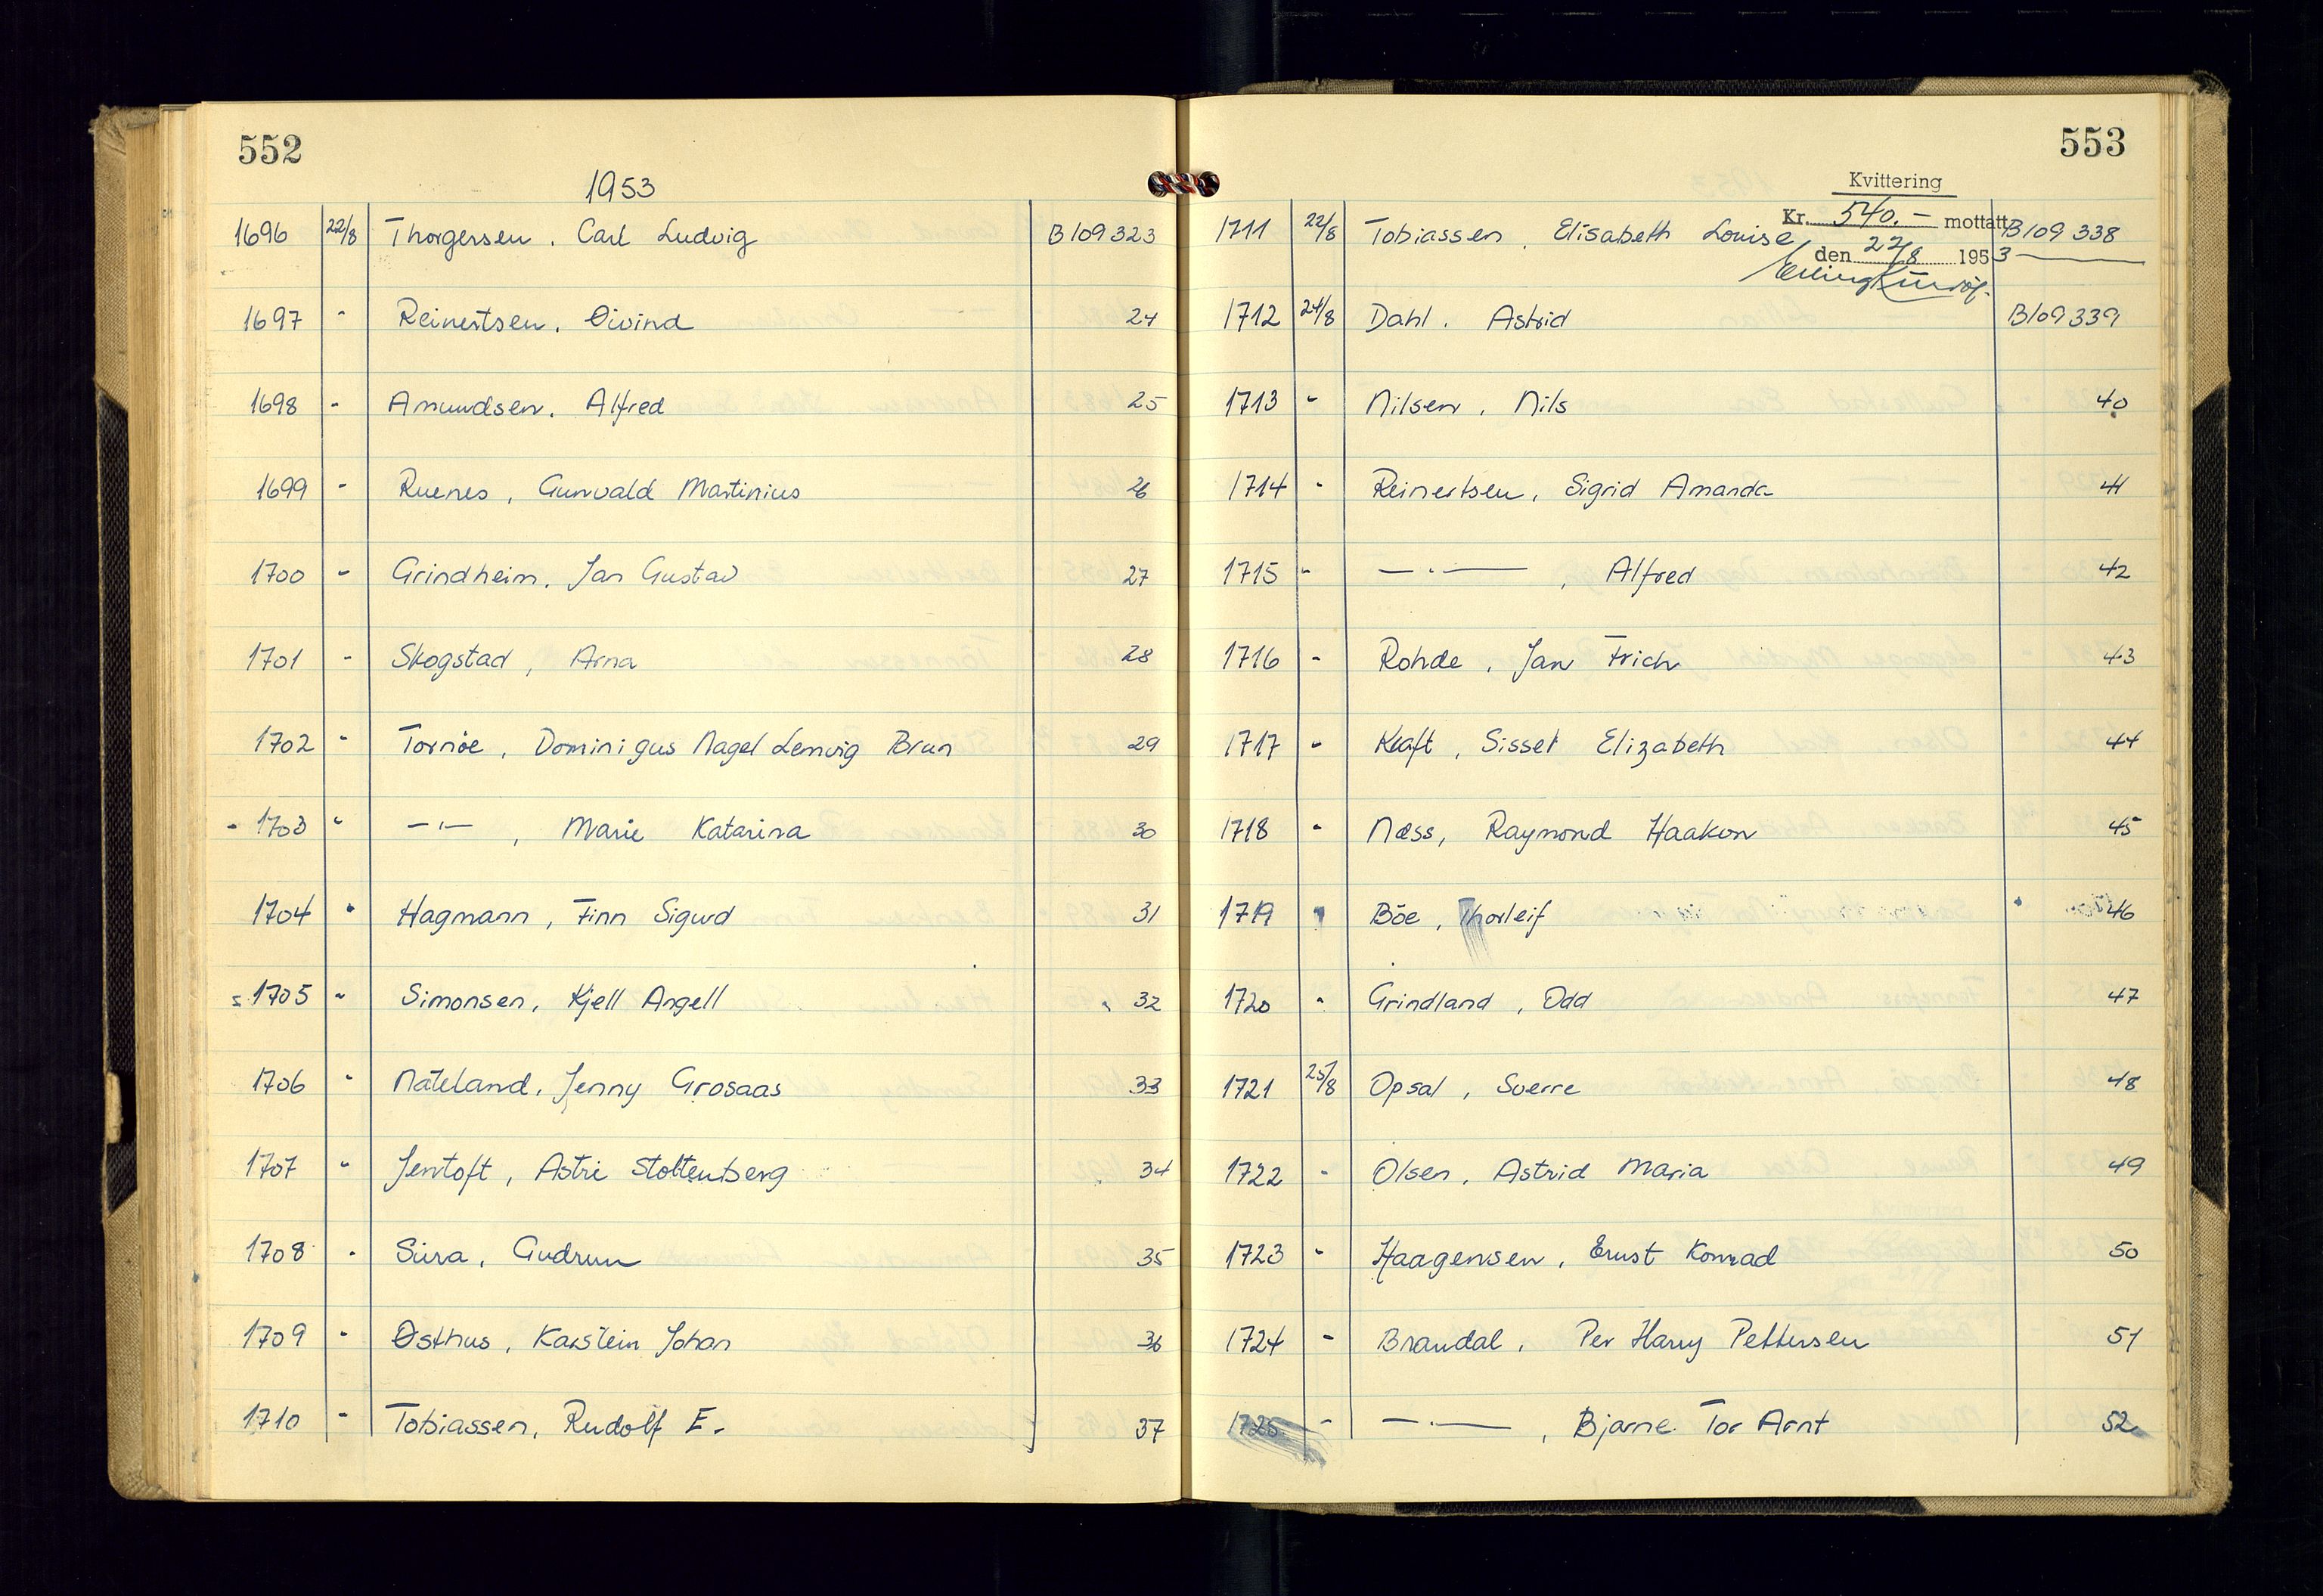 552
1953
1696 22/8 Thorgersen. Carl Ludvig B109323
1697 " Reinertsen. Øivind 24
1698 - Amundsen. Alfred 25
1699 " Ruenes, Gunvald Martinius 26
1700 " Grindheim. Jan Gustav 27
1701 - Skogstad, Arna 28
1702 " Tornöe, Dominigus Nagel Lemvig Brun 29
- 1703 " —"—, Marie Katarina 30
1704 " Hagmann, Finn Sigurd 31
1705 " Simonsen, Kjell Angell 32
1706 " Nateland. Jenny Grosaas 33
1707 " Jentoft, Astri Stoltenberg 34
1708 " Sira, Gudrun 35
1709 " Østhus, Karstein Johan 36
1710 " Tobiassen, Rudolf E. 37
553
Kvittering
Kr. 540.- mottatt
den 22/8 1953
1711 22/8 Tobiassen, Elisabeth Louise B109338
1712 24/8 Dahl. Astrid B109339
1713 " Nilsen, Nils 40
1714 " Reinertsen, Sigrid Amanda 41
1715 " —"—, Alfred 42
1716 - Rohde, Jan Frich 43
1717 " Kraft, Sissel Elizabeth 44
1718 " Næss, Raymond Haakon 45
1719 " Böe, Thorleif 46
1720 " Grindland, Odd 47
1721 25/8 Opsal, Sverre 48
1722 - Olsen, Astrid Maria 49
1723 " Haagensen, Ernst Konrad 50
1724 - Brandal, Per Harry Pettersen 51
1725 - —"—, Bjarne Tor Arnt 52